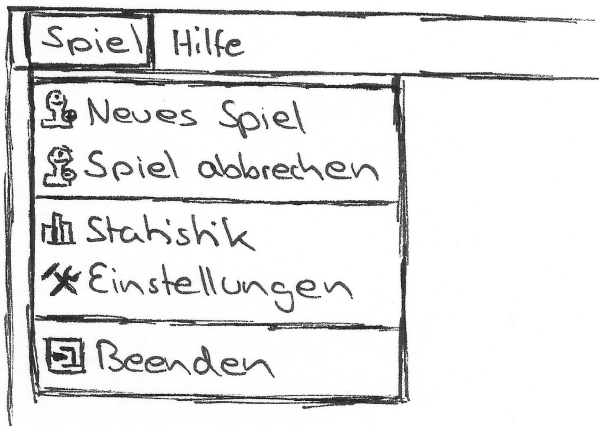 Spiel Hilfe
Neues Spiel
Spiel abbrechen
Statistik
Einstellungen
Beenden